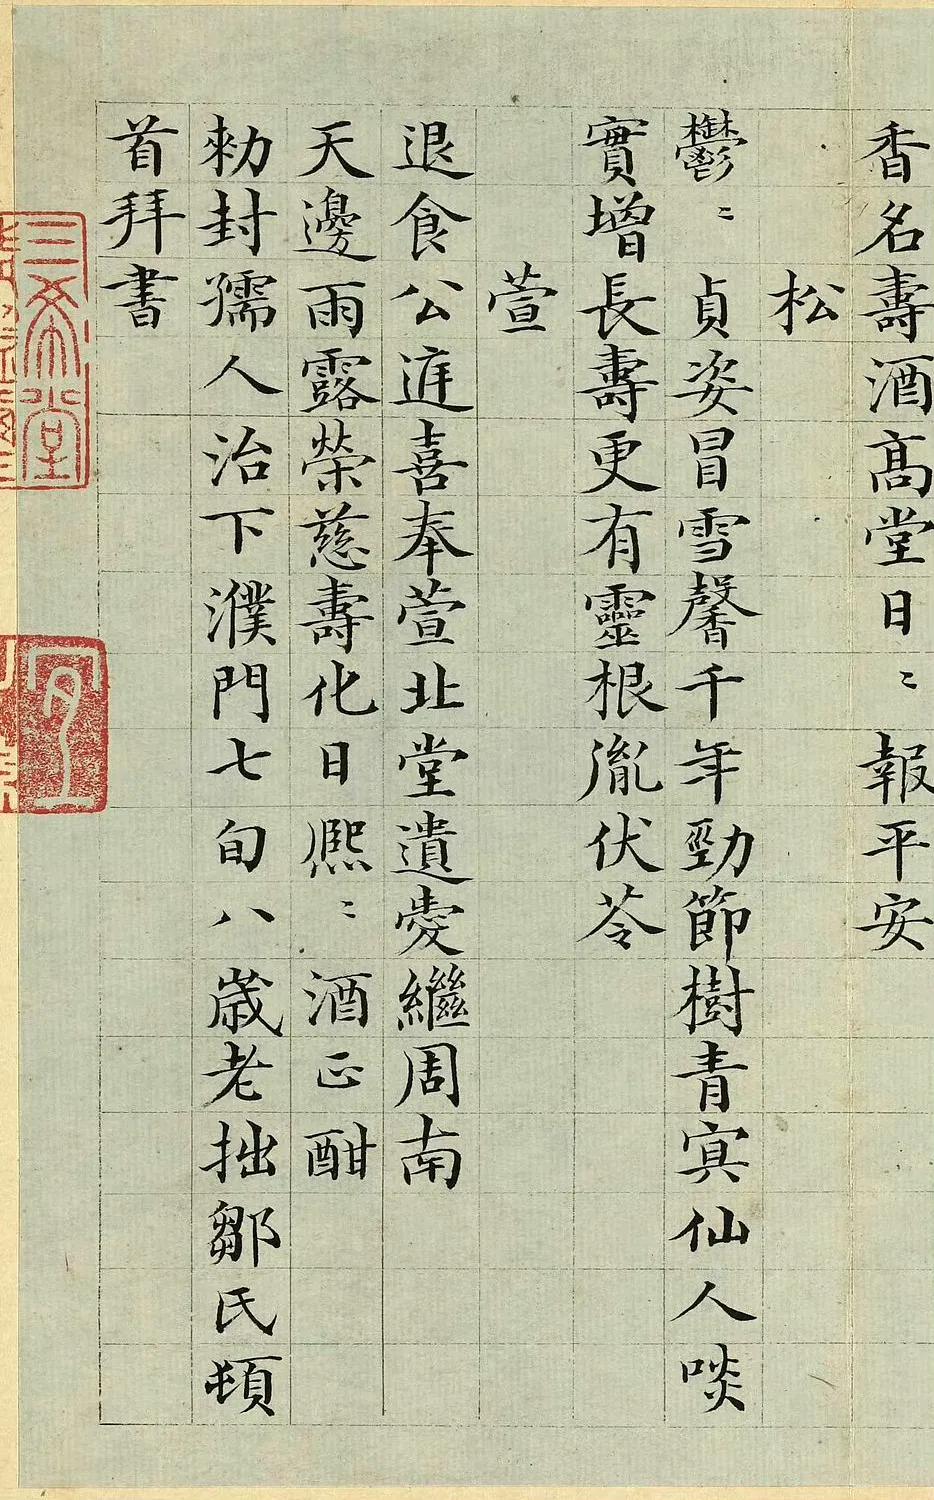 香名壽酒高堂日〻報平安
松
鬱〻貞姿冒雪馨千年勁節樹青冥仙人啖
實增長壽更有靈根胤伏苓
萱
退食公庭喜奉萱北堂遺愛繼周南
天邊雨露榮慈壽化日熈〻酒正酣
勑封孺人治下濮門七旬八歲老拙鄒氏頓
首拜書
三希堂
宜